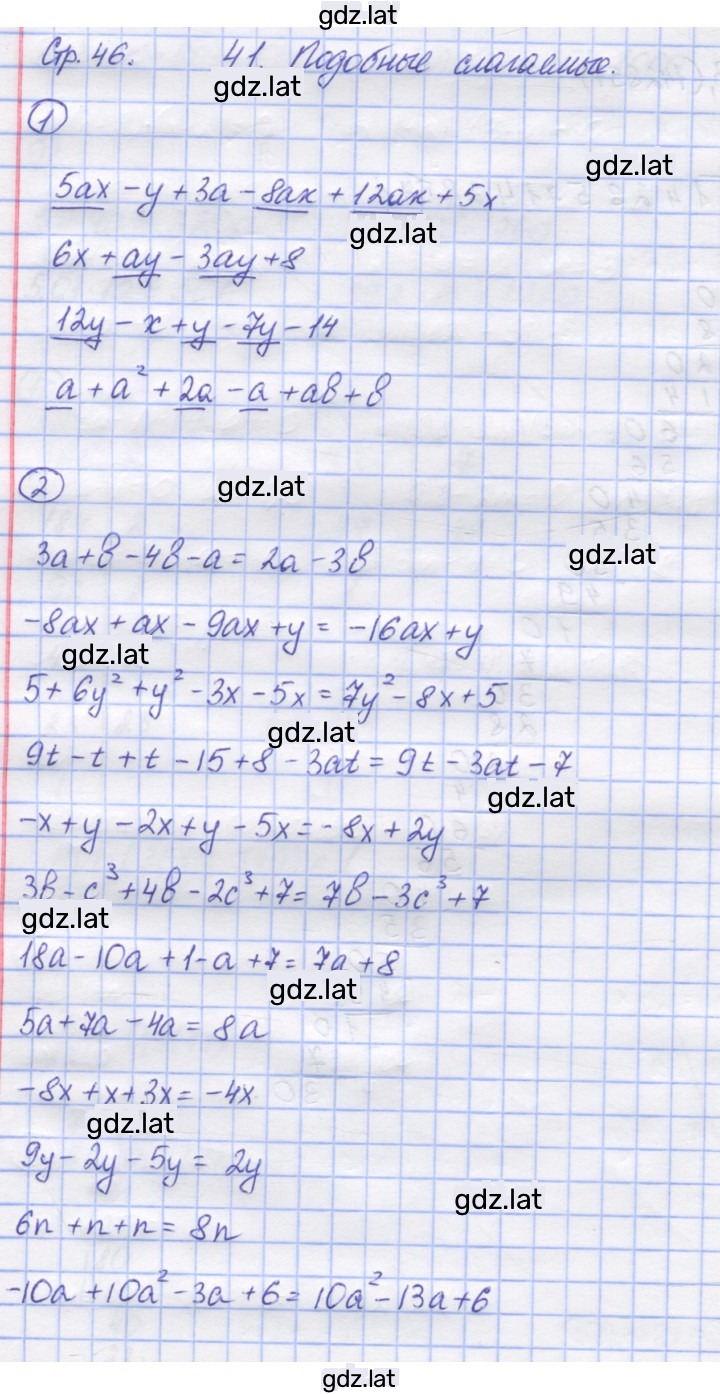 gdz.lat
Стр. 46. 41. Подобные слагаемые.
gdz.lat
1
gdz.lat
5ax - y + 3a - 8ax + 12ax + 5x
gdz.lat
6x + ay - 3ay + 8
12y - x + y - 7y - 14
a + a² + 2a - a + aв + в
2
gdz.lat
3a + в - 4в - a = 2a - 3в
gdz.lat
-8ax + ax - 9ax + y = -16ax + y
gdz.lat
5 + 6y² + y² - 3x - 5x = 7y² - 8x + 5
gdz.lat
9t - t + t - 15 + 8 - 3at = 9t - 3at - 7
gdz.lat
-x + y - 2x + y - 5x = -8x + 2y
3в - c³ + 4в - 2c³ + 7 = 7в - 3c³ + 7
gdz.lat
18a - 10a + 1 - a + 7 = 7a + 8
gdz.lat
5a + 7a - 4a = 8a
-8x + x + 3x = -4x
gdz.lat
9y - 2y - 5y = 2y
gdz.lat
6n + n + n = 8n
-10a + 10a² - 3a + 6 = 10a² - 13a + 6
gdz.lat